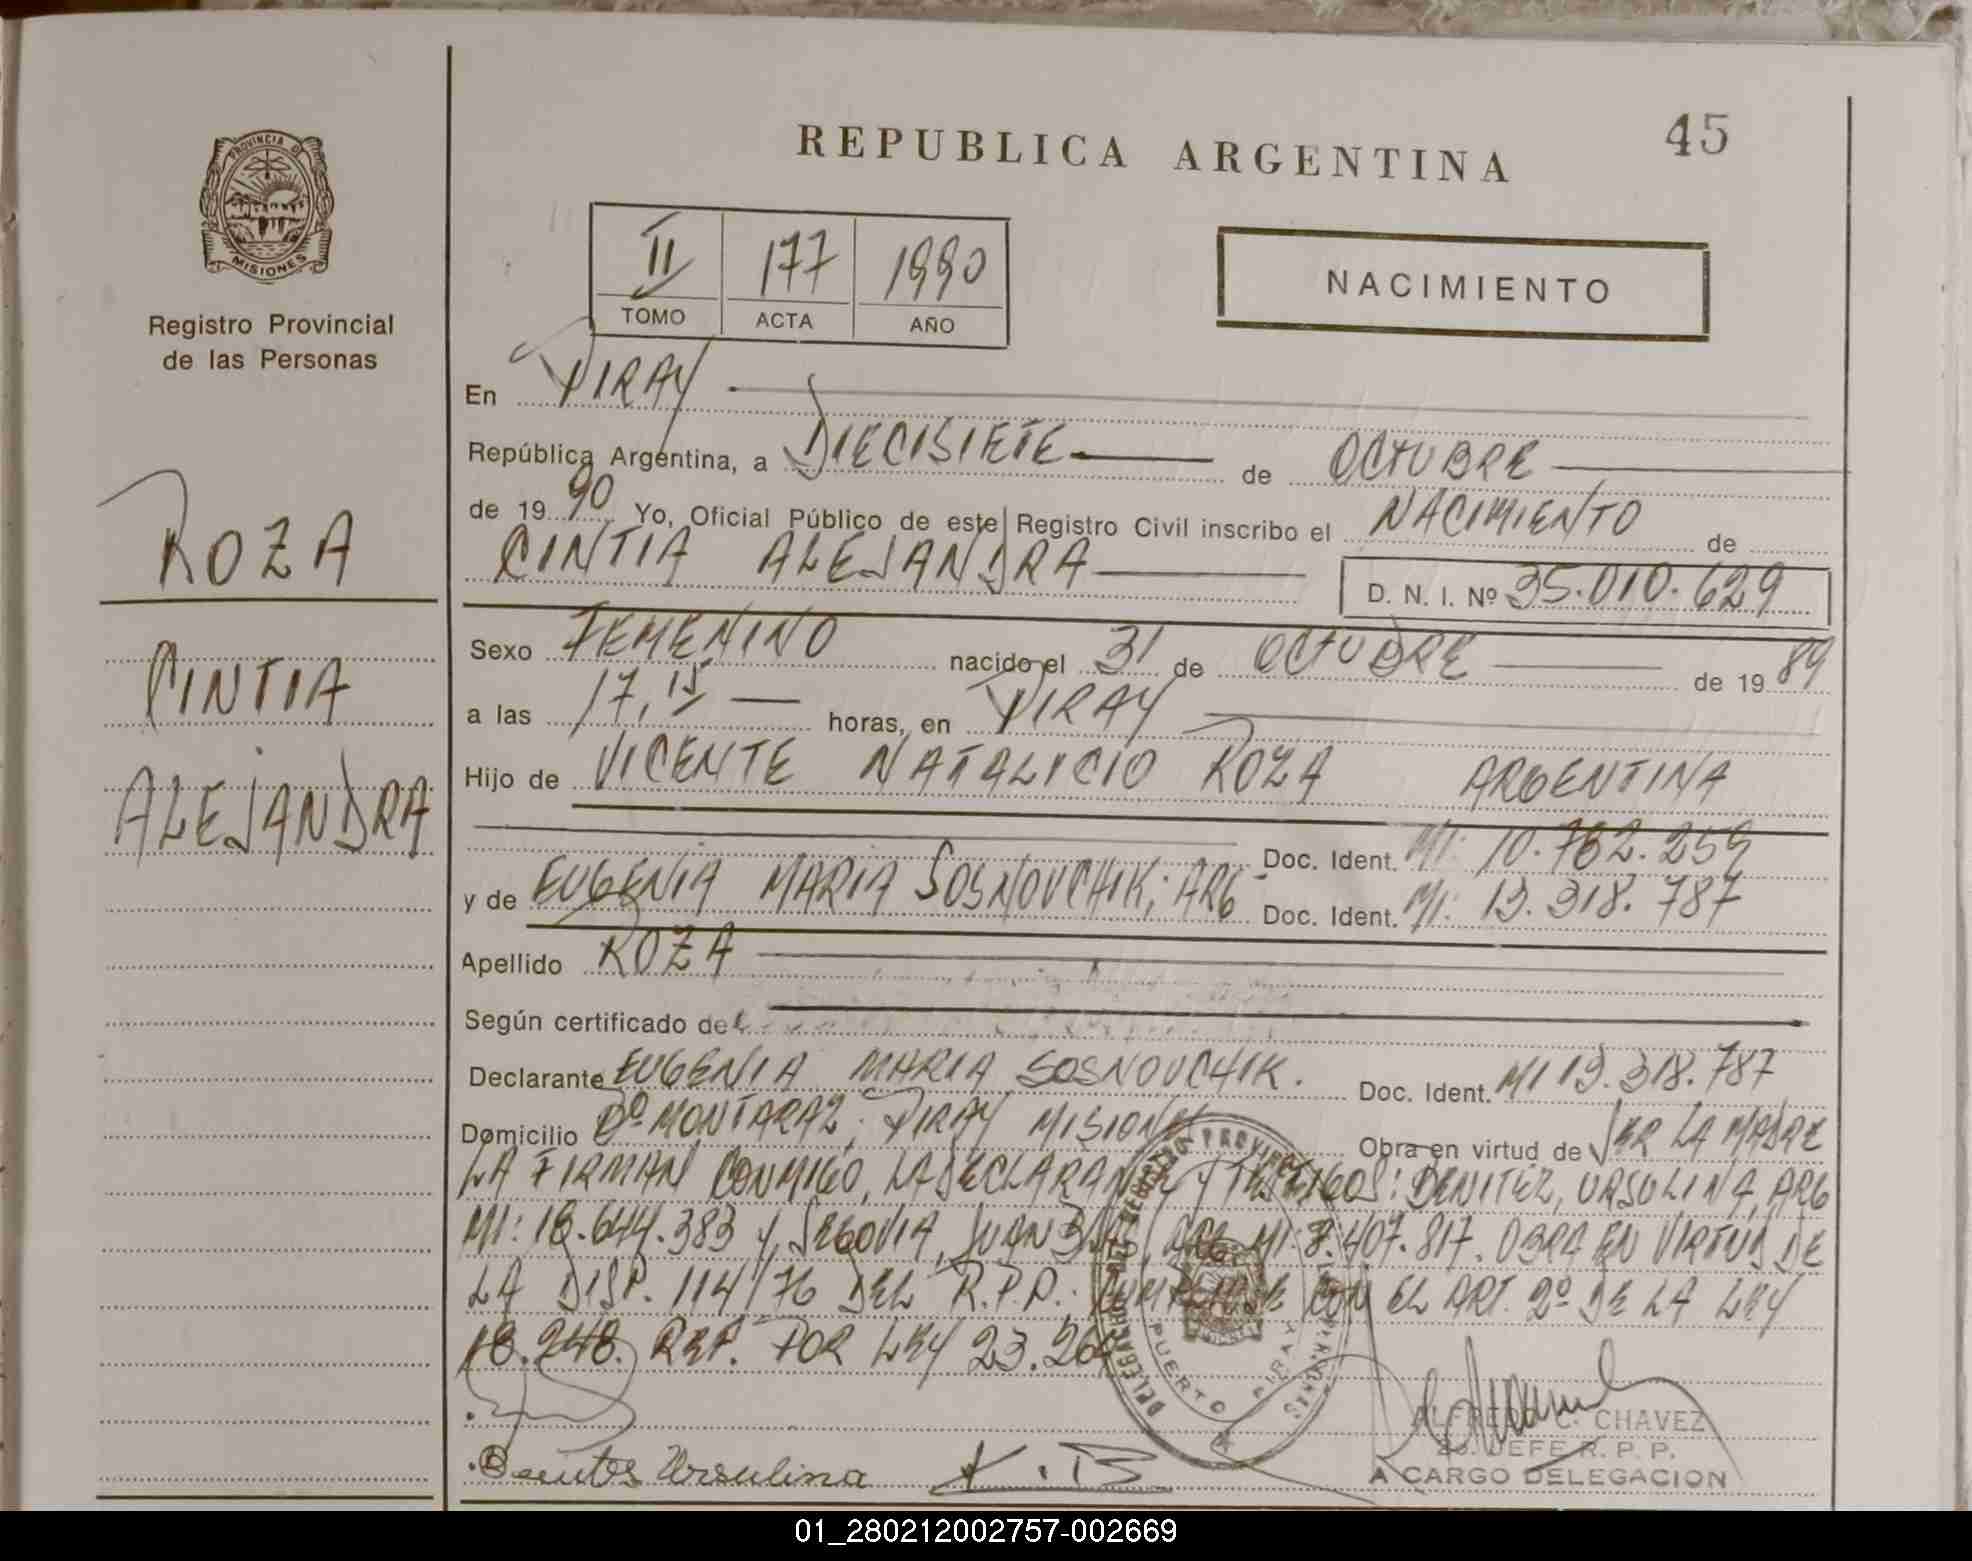 REPUBLICA ARGENTINA
45
PROVINCIA DE
MISIONES
Registro Provincial
de las Personas
II 177 1990
TOMO ACTA AÑO
NACIMIENTO
ROZA
CINTIA
ALEJANDRA
En PIRAY
República Argentina, a DIECISIETE de OCTUBRE
de 19 90 Yo, Oficial Público de este Registro Civil inscribo el NACIMIENTO de
CINTIA ALEJANDRA D. N. I. Nº 35.010.629
Sexo FEMENINO nacido el 31 de OCTUBRE de 19 89
a las 17,15 horas, en PIRAY
Hijo de VICENTE NATALICIO ROZA ARGENTINA
Doc. Ident. MI: 10.762.259
y de EUGENIA MARIA SOSNOVCHIK; ARG Doc. Ident. MI: 13.318.787
Apellido ROZA
Según certificado de
Declarante EUGENIA MARIA SOSNOVCHIK. Doc. Ident. MI 13.318.787
Domicilio Bº MONTARAZ; PIRAY MISIONES Obra en virtud de SER LA MADRE
LA FIRMAN CONMIGO, LA DECLARANTE Y TESTIGOS: BENITEZ, URSULINA, ARG
MI: 18.644.383 y, SEGOVIA, JUAN ARG MI: 7.407.817. OBRA EN VIRTUD DE
LA DISP. 114/76 DEL R.P.P.; CUMPLASE CON EL ART. 2º DE LA LEY
18.248. REF. POR LEY 23.264
PUERTO PIRAY
Benites Ursulina
ALFREDO C. CHAVEZ
2º JEFE R. P. P.
A CARGO DELEGACION
01_280212002757-002669